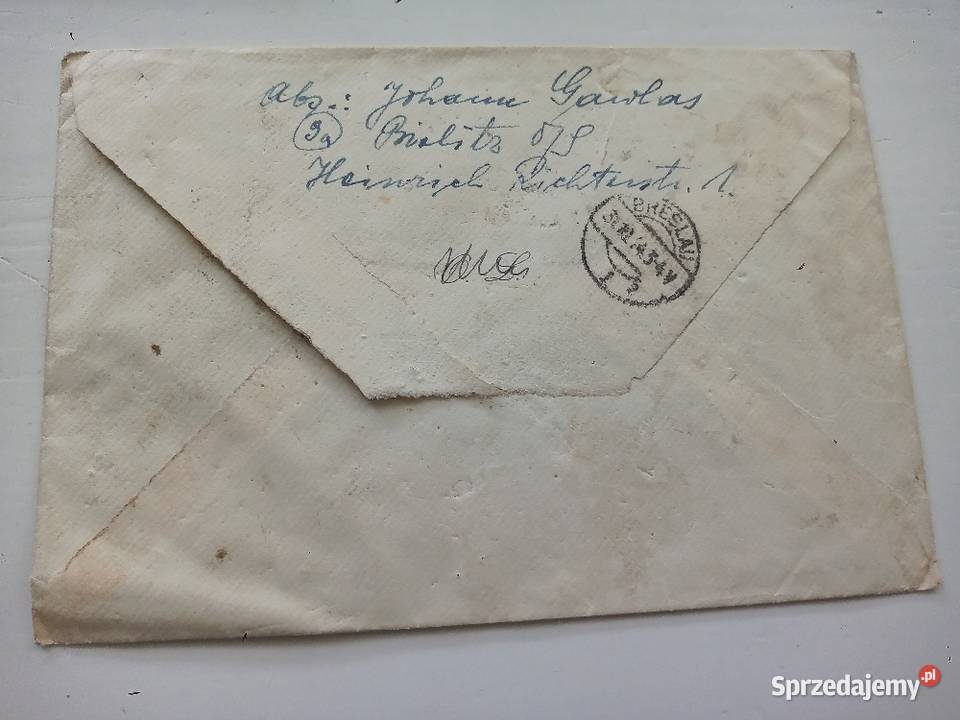 Abs.: Johann Gawlas
9a Bielitz O/S
Heinrich Richterstr. 1.
BRESLAU
Sprzedajemy.pl